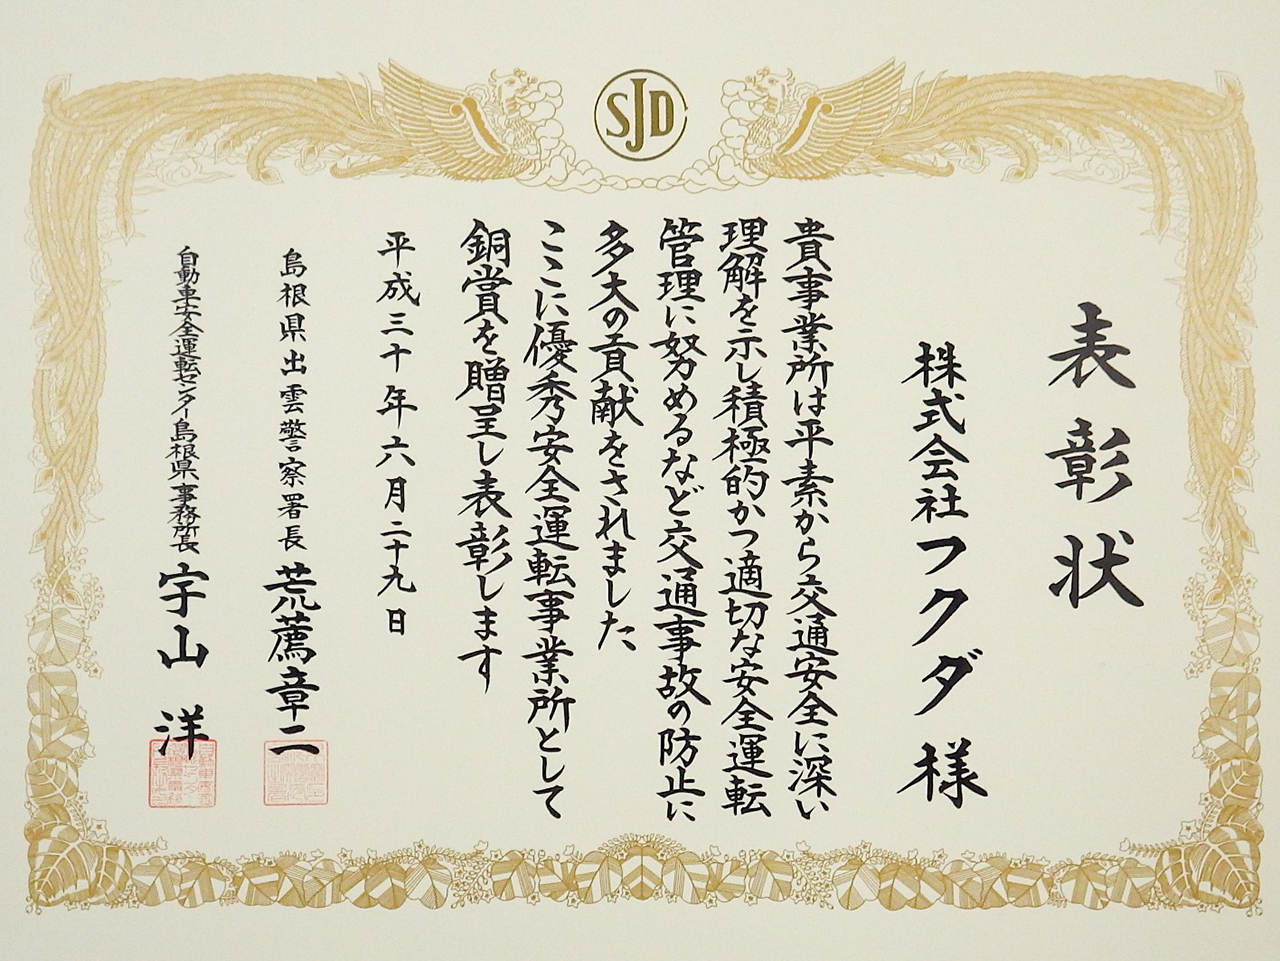 SJD
表彰状
株式会社フクダ 様
貴事業所は平素から交通安全に深い
理解を示し積極的かつ適切な安全運転
管理に努めるなど交通事故の防止に
多大の貢献をされました
ここに優秀安全運転事業所として
銅賞を贈呈し表彰します
平成三十年六月二十九日
島根県出雲警察署長 荒薦章二
自動車安全運転センター島根県事務所長 宇山 洋